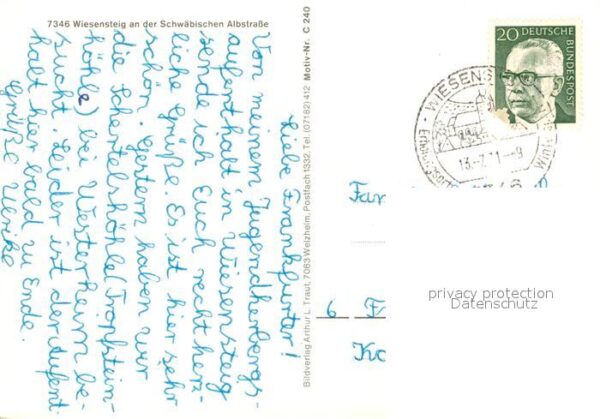 7346 Wiesensteig an der Schwäbischen Albstraße
Liebe Frankfurter!
Von meinem Jugendherbergs-
aufenthalt in Wiesensteig
sende ich Euch recht herz-
liche Grüße. Es ist hier sehr
schön. Gestern haben wir
die Schertelshöhle (Tropfstein-
höhle) bei Westerheim be-
sucht. Leider ist der Aufent-
halt hier bald zu Ende.
Grüße Ulrike
Bildverlag Arthur L. Traut, 7063 Welzheim, Postfach 1332, Tel. (07182) 412 Motiv-Nr. C 240
20 DEUTSCHE
BUNDESPOST
WIESENS
13.-7.71.--9
Fam
6 F
privacy protection
Datenschutz